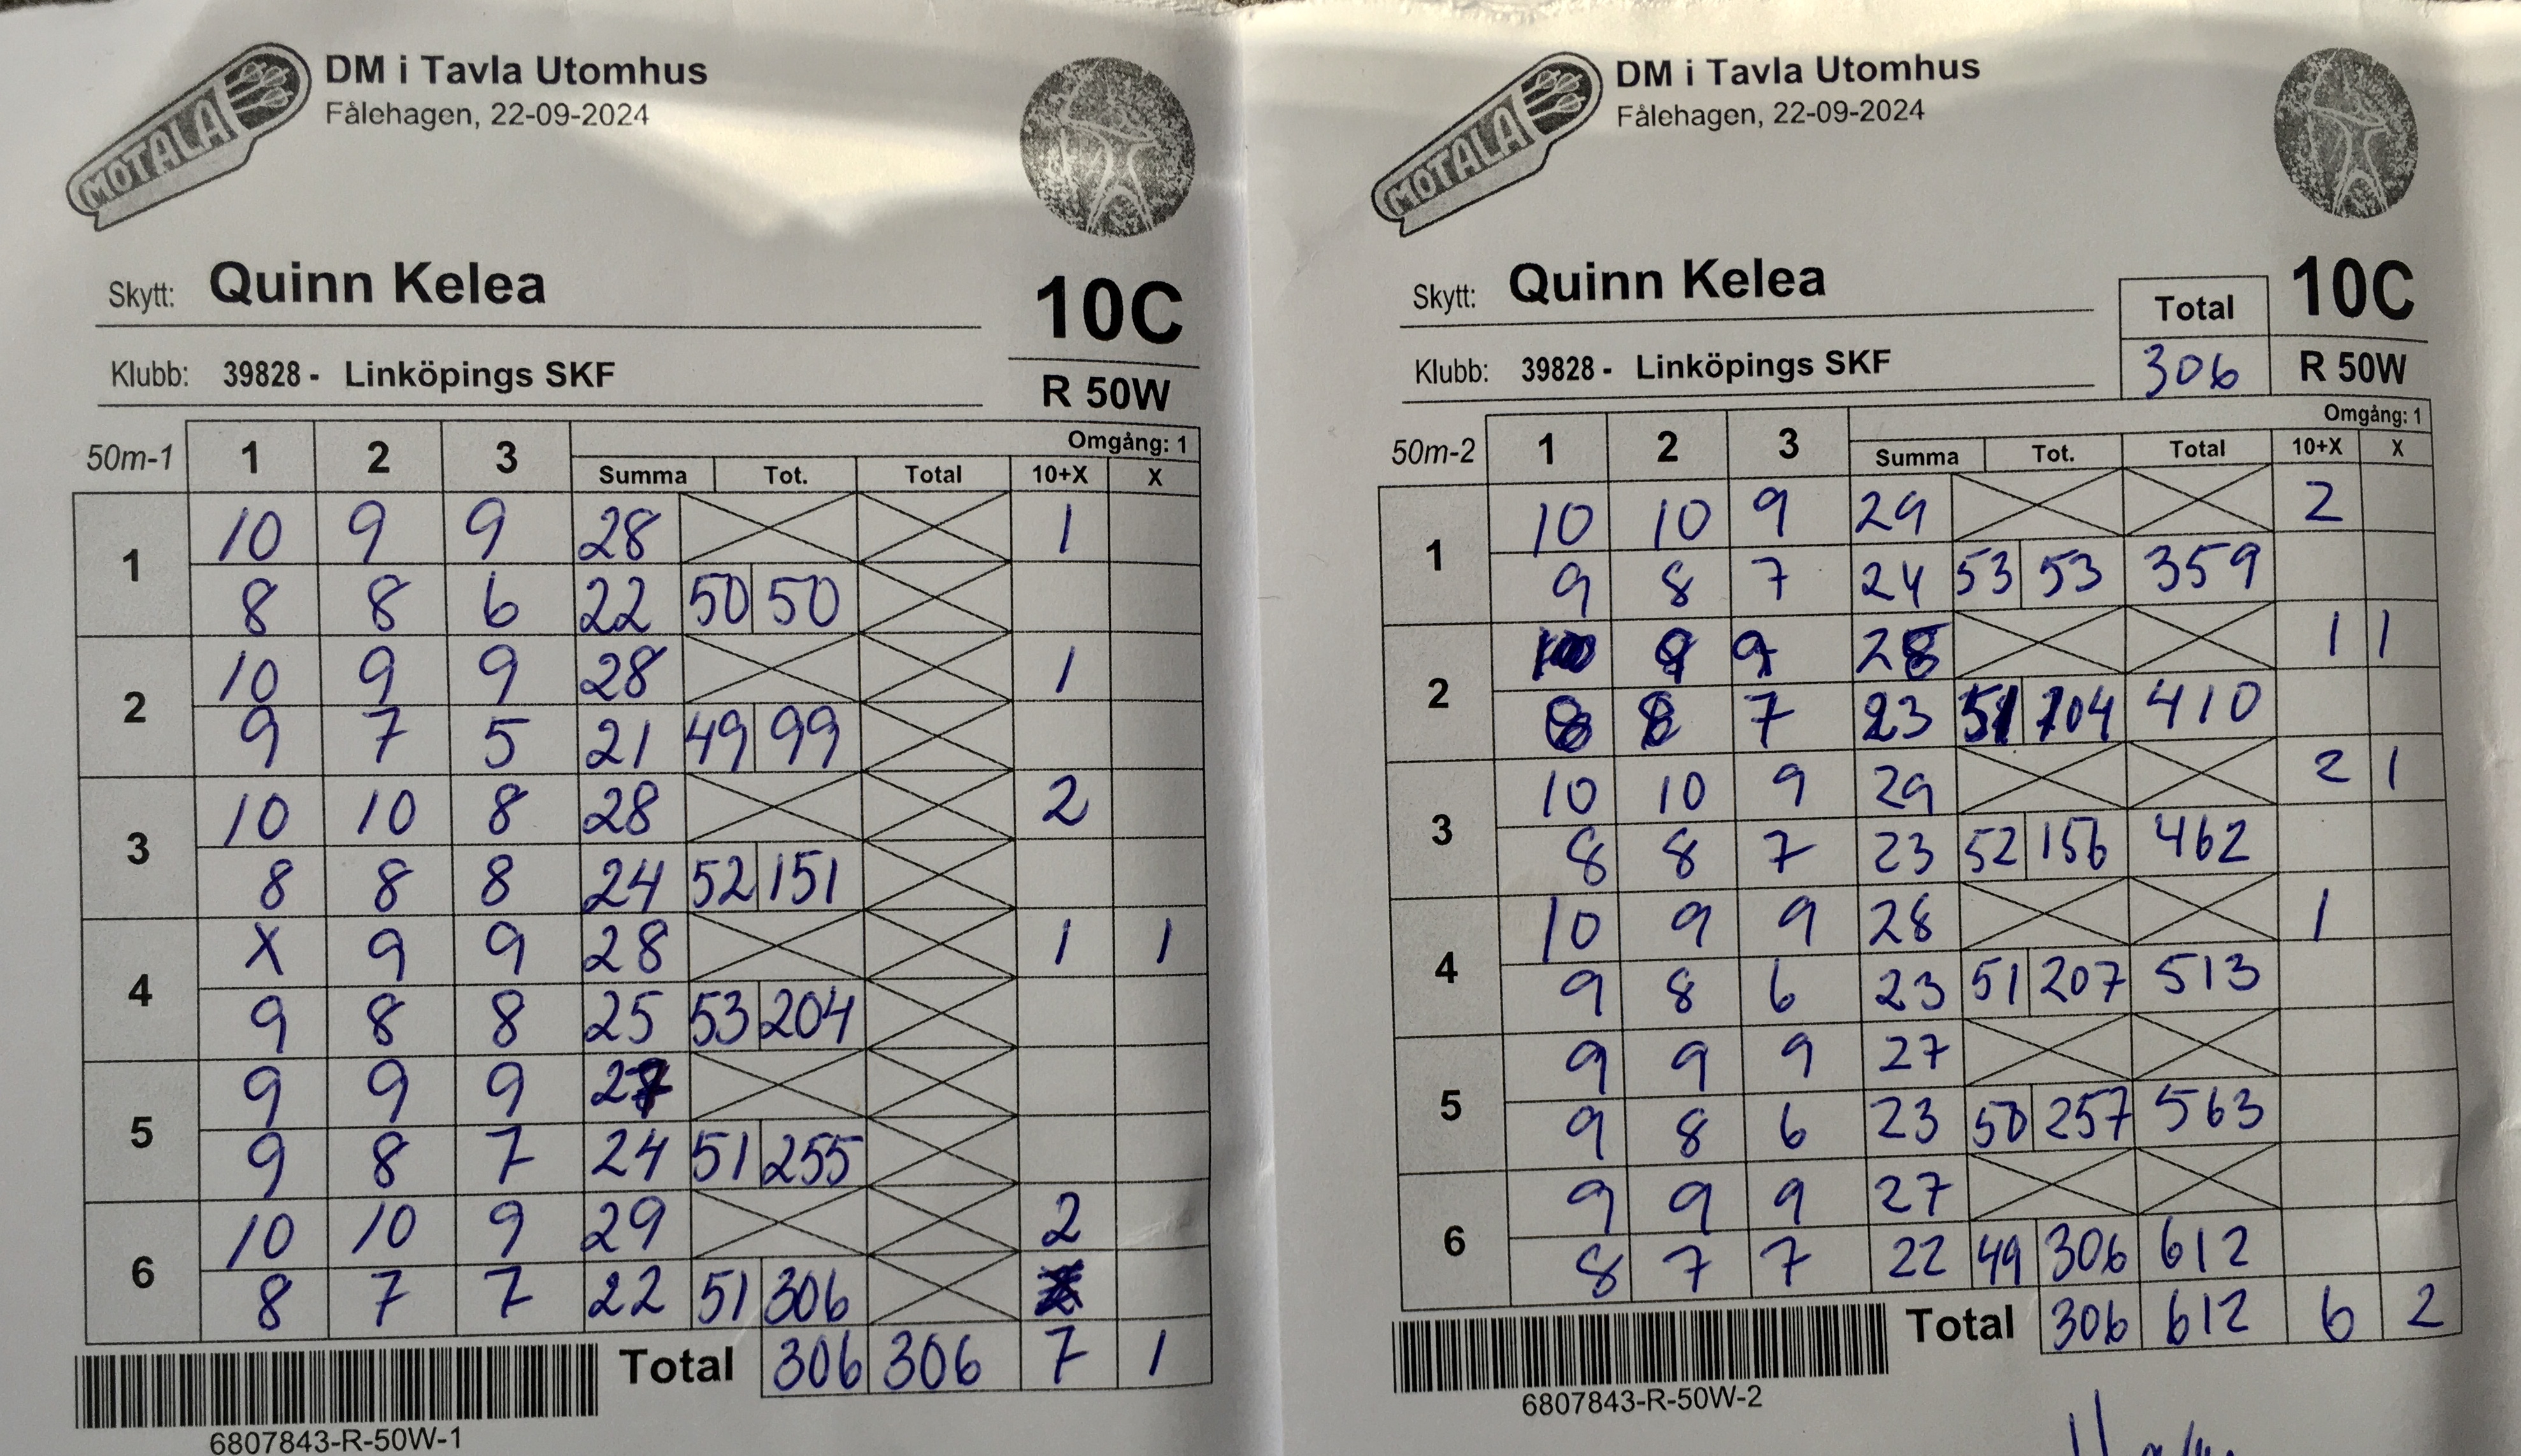 MOTALA
DM i Tavla Utomhus
Fålehagen, 22-09-2024
Skytt: Quinn Kelea
10C
Klubb: 39828 - Linköpings SKF
R 50W
50m-1 1 2 3 Omgång: 1
Summa Tot. Total 10+X X
1 10 9 9 28 1
8 8 6 22 50 50
2 10 9 9 28 1
9 7 5 21 49 99
3 10 10 8 28 2
8 8 8 24 52 151
4 X 9 9 28 1 1
9 8 8 25 53 204
5 9 9 9 27
9 8 7 24 51 255
6 10 10 9 29 2
8 7 7 22 51 306
Total 306 306 7 1
6807843-R-50W-1
MOTALA
DM i Tavla Utomhus
Fålehagen, 22-09-2024
Skytt: Quinn Kelea
Total 10C
Klubb: 39828 - Linköpings SKF
306 R 50W
50m-2 1 2 3 Omgång: 1
Summa Tot. Total 10+X X
1 10 10 9 29 2
9 8 7 24 53 53 359
2 9 9 28 1 1
8 8 7 23 51 104 410
3 10 10 9 29 2 1
8 8 7 23 52 156 462
4 10 9 9 28 1
9 8 6 23 51 207 513
5 9 9 9 27
9 8 6 23 50 257 563
6 9 9 9 27
8 7 7 22 49 306 612
Total 306 612 6 2
6807843-R-50W-2